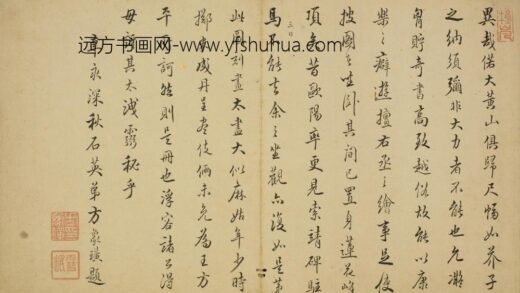 異哉偌大黄山俱歸尺幅如芥子
之納須彌非大力者不能也允凝
胷貯奇書高致越俗故能以康
樂之癖遊擅右丞之繪事是使
披圖之坐卧其間已置身蓮花峰
頂矣昔歐陽率更見索靖碑駐
三日
馬不能去余之坐觀亦復如是第
此圖刻畫太盡大似麻姑年少時
擲米成丹呈盡伎倆未免為王方
平所訶然則是冊也浮容諸公得
毋訝其太洩靈秘乎
深秋石英弟方象璜題
远方书画网-www.yfshuhua.com